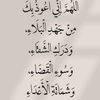 اللَّهُمَّ إِنِّي أَعُوذُ بِكَ
مِنْ جَهْدِ الْبَلَاءِ،
وَدَرَكِ الشَّقَاءِ،
وَسُوءِ الْقَضَاءِ،
وَشَمَاتَةِ الْأَعْدَاءِ